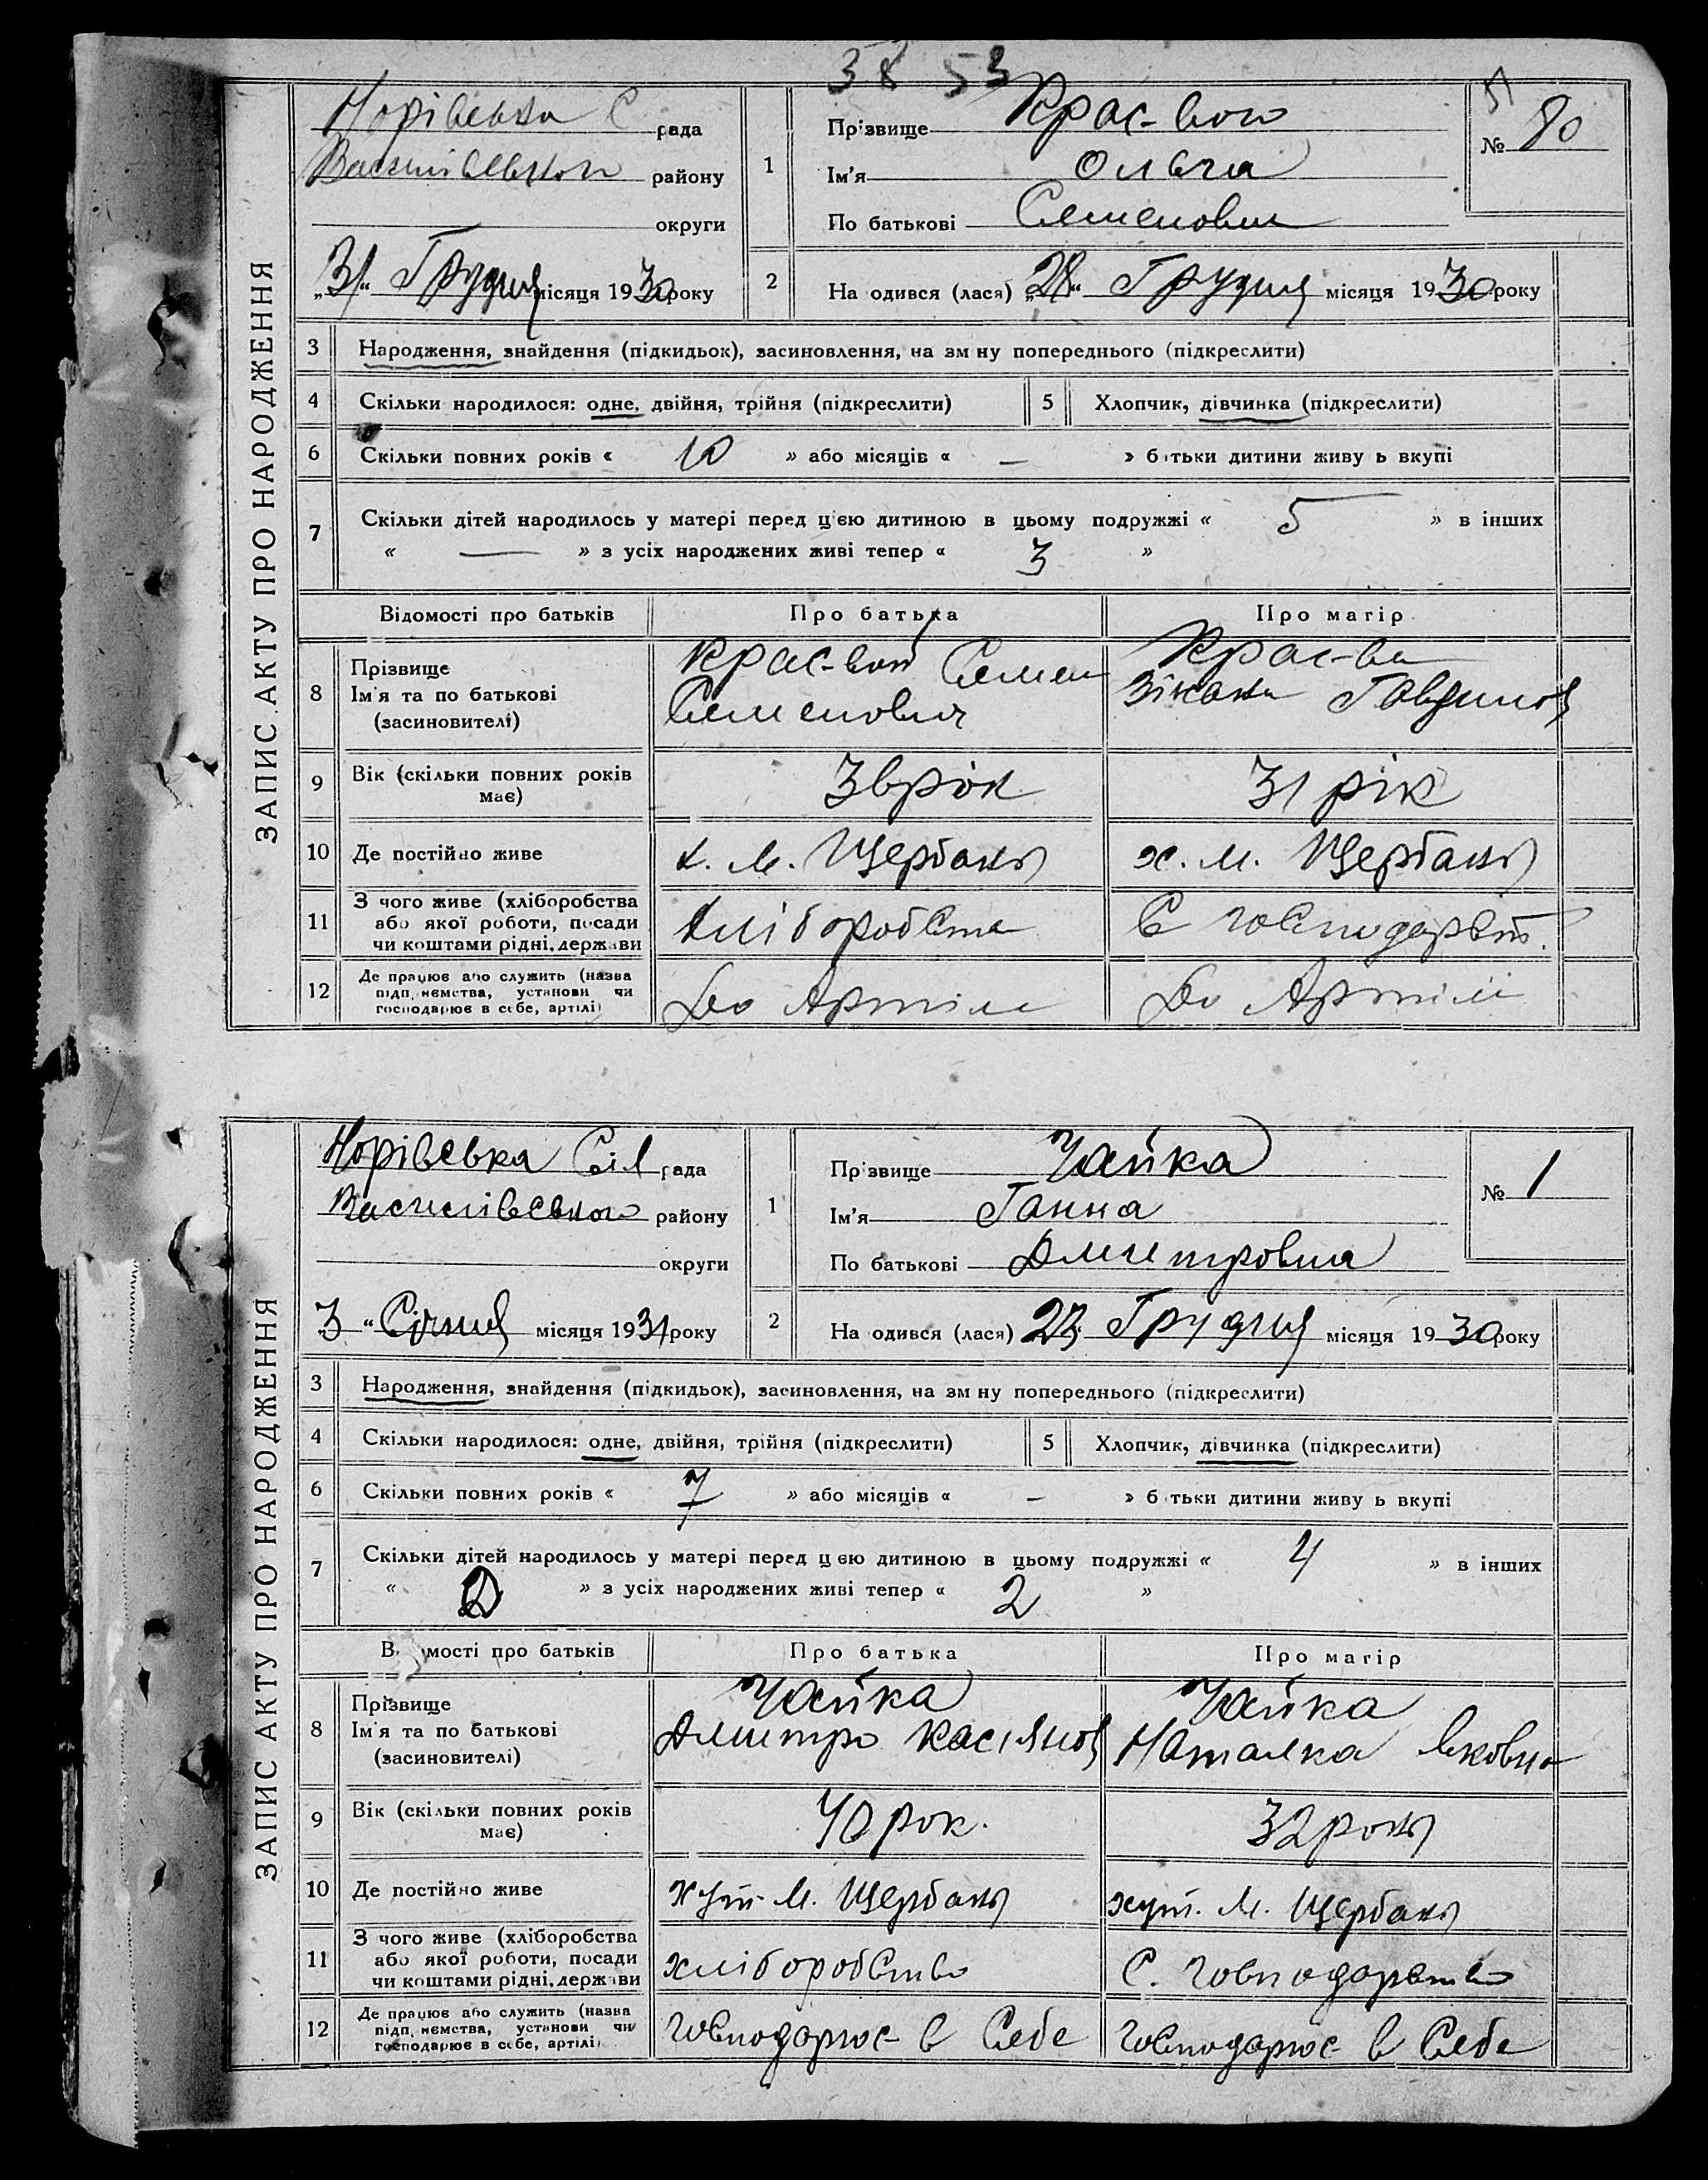 38 53
ЗАПИС АКТУ ПРО НАРОДЖЕННЯ
Норівська С рада
Василівського району
округи
„31“ Грудня місяця 1930 року
1
Прізвище Крас-вого
Ім'я Ольга
По батькові Семеновна
51
№ 80
2
На одився (лася) „28“ Грудня місяця 1930 року
3 Народження, знайдення (підкидьок), засиновлення, на зм ну попереднього (підкреслити)
4 Скільки народилося: одне, двійня, трійня (підкреслити) 5 Хлопчик, дівчинка (підкреслити)
6 Скільки повних років « 10 » або місяців « — » б тьки дитини живу ь вкупі
7 Скільки дітей народилось у матері перед цією дитиною в цьому подружжі « 5 » в інших
« — » з усіх народжених живі тепер « 3 »
Відомості про батьків Про батька Про матір
8 Прізвище
Ім'я та по батькові
(засиновителі)
Крас-вой Семен
Семенович
Крас-ва
9 Вік (скільки повних років
має)
рок 31 рік
10 Де постійно живе х. М. Щербаки х. М. Щербаки
11 З чого живе (хліборобства
або якої роботи, посади
чи коштами рідні, держави
хліборобства С господарст.
12 Де працює або служить (назва
підп иємства, установи чи
господарює в себе, артілі)
До Артілі До Артілі
ЗАПИС АКТУ ПРО НАРОДЖЕННЯ
Норівська Сіл рада
Василівського району
округи
„3“ Січня місяця 1931 року
1
Прізвище Чайка
Ім'я Ганна
По батькові Дмитровна
№ 1
2
На одився (лася) Грудня місяця 1930 року
3 Народження, знайдення (підкидьок), засиновлення, на зм ну попереднього (підкреслити)
4 Скільки народилося: одне, двійня, трійня (підкреслити) 5 Хлопчик, дівчинка (підкреслити)
6 Скільки повних років « 7 » або місяців « — » б тьки дитини живу ь вкупі
7 Скільки дітей народилось у матері перед цією дитиною в цьому подружжі « 4 » в інших
« » з усіх народжених живі тепер « 2 »
В мості про батьків Про батька Про матір
8 Прізвище
Ім'я та по батькові
(засиновителі)
Чайка
Дмитро Касіянов
Чайка
Наталка Яковна
9 Вік (скільки повних років
має)
40 рок. 32 роки
10 Де постійно живе хут. М. Щербаки хут. М. Щербаки
11 З чого живе (хліборобства
або якої роботи, посади
чи коштами рідні, держави
хліборобство С. господарство
12 Де працює або служить (назва
підп иємства, установи чи
господарює в себе, артілі)
Господарює в Себе Господарює в Себе